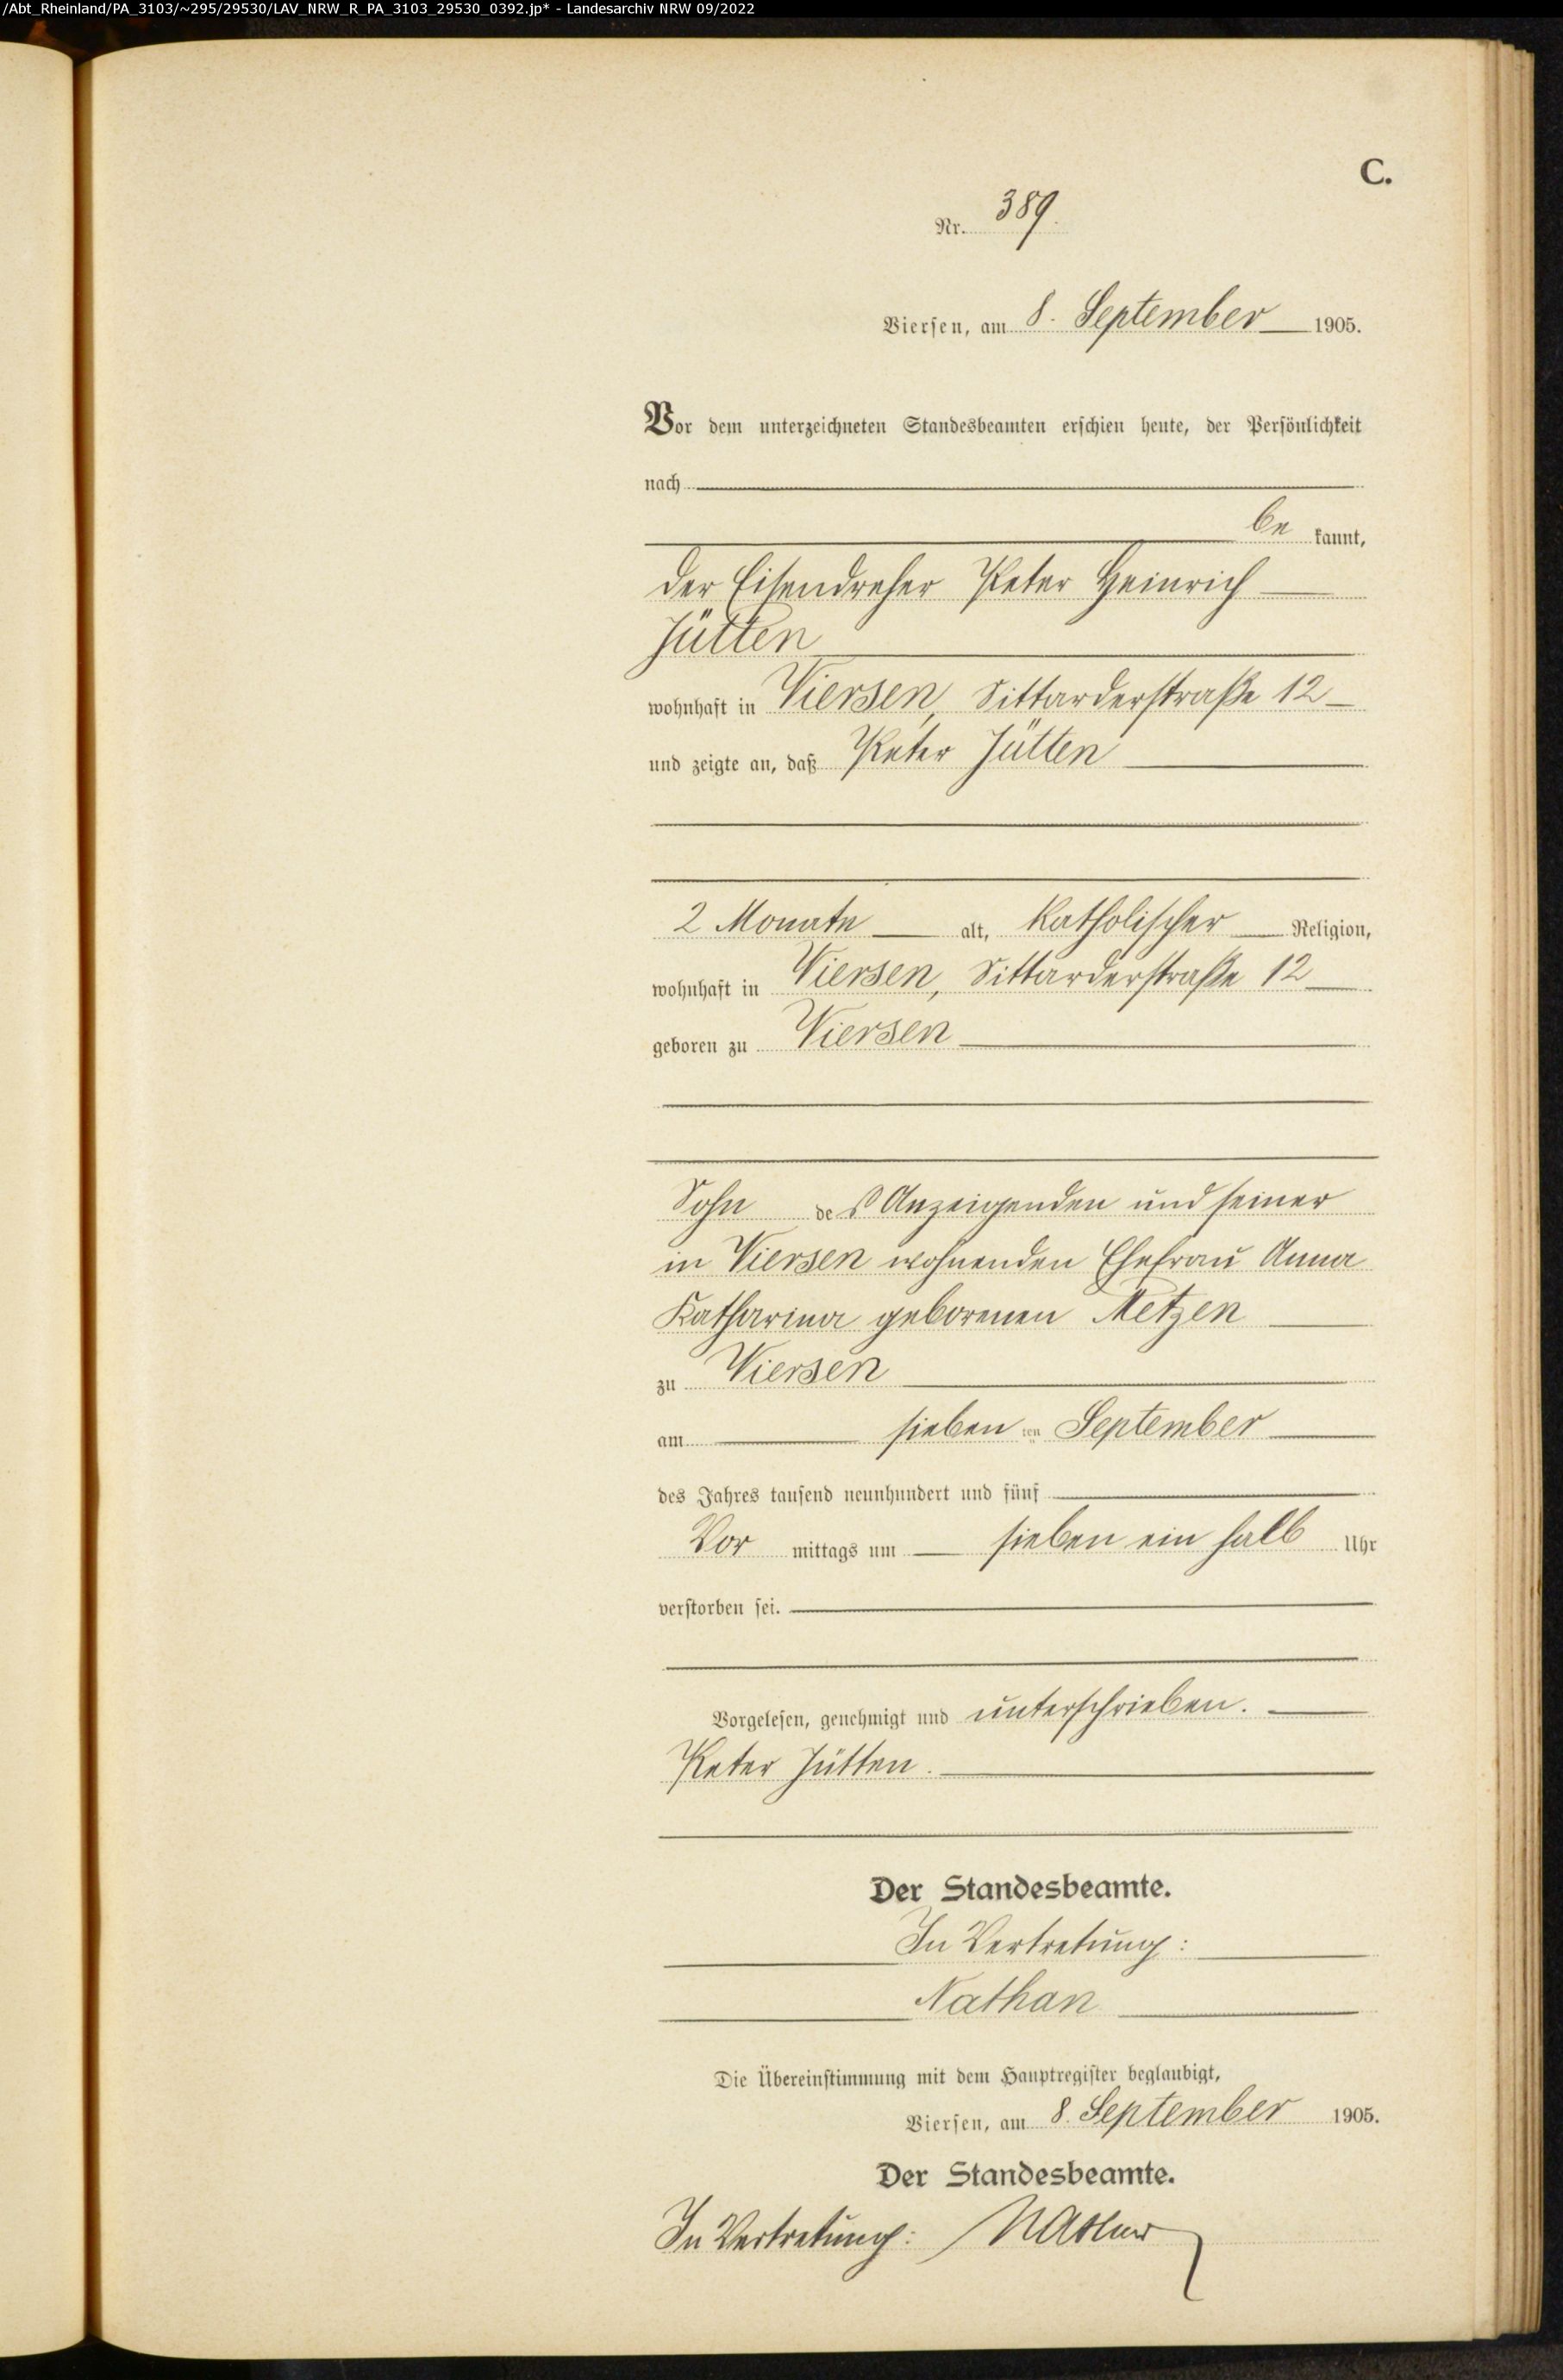 /Abt_Rheinland/PA_3103/~295/29530/LAV_NRW_R_PA_3103_29530_0392.jp* - Landesarchiv NRW 09/2022
C.
Nr. 389.
Viersen, am 8. September 1905.
Vor dem unterzeichneten Standesbeamten erschien heute, der Persönlichkeit
nach
be kannt,
der Eisendreher Peter Heinrich
Jütten
wohnhaft in Viersen, Sittarderstraße 12
und zeigte an, daß Peter Jütten
2 Monate alt, katholischer Religion,
wohnhaft in Viersen, Sittarderstraße 12
geboren zu Viersen
Sohn des Anzeigenden und seiner
in Viersen wohnenden Ehefrau Anna
Katharina geborenen Metzen
zu Viersen
am sieben ten September
des Jahres tausend neunhundert und fünf
Vor mittags um sieben ein halb Uhr
verstorben sei.
Vorgelesen, genehmigt und unterschrieben.
Peter Jütten.
Der Standesbeamte.
In Vertretung:
Nathan
Die Übereinstimmung mit dem Hauptregister beglaubigt,
Viersen, am 8. September 1905.
Der Standesbeamte.
In Vertretung: Nathan